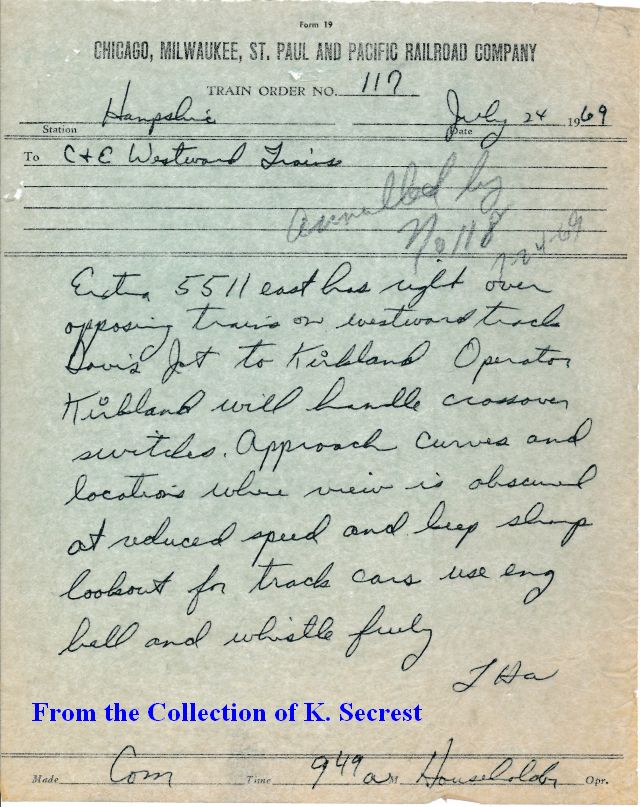 Form 19
CHICAGO, MILWAUKEE, ST. PAUL AND PACIFIC RAILROAD COMPANY
TRAIN ORDER NO. 117
Hampshire July 24 1969
Station Date
To C+E Westward Trains
Annulled by
No 118
7-24-69
Extra 5511 east has right over
opposing trains on westward track
Davis Jct to Kirkland Operator
Kirkland will handle crossover
switches. Approach curves and
locations where view is obscured
at reduced speed and keep sharp
lookout for track cars use eng
bell and whistle freely
From the Collection of K. Secrest
Made Com Time 949 a M Householder Opr.